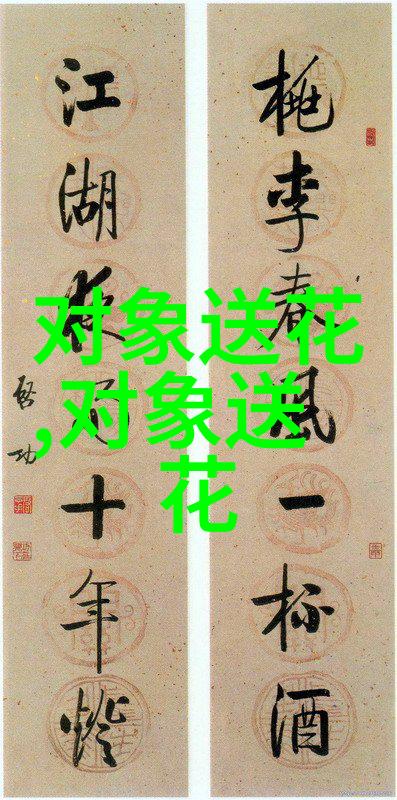 桃李春风一杯酒
江湖夜雨十年灯
啓功
对象送花
,对象送
花